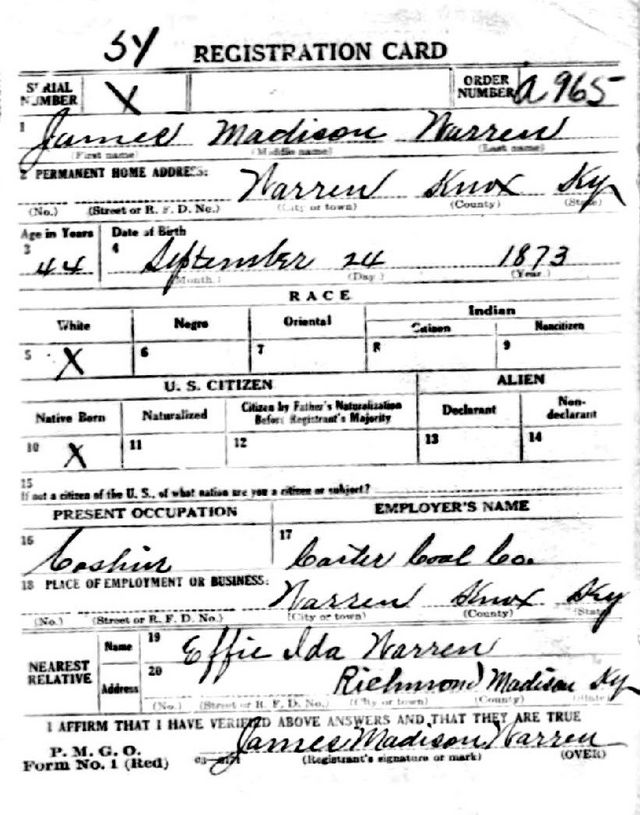 54 REGISTRATION CARD
SERIAL NUMBER X ORDER NUMBER A965
1 James Madison Warren
(First name) (Middle name) (Last name)
2 PERMANENT HOME ADDRESS: Warren Knox Ky
(No.) (Street or R. F. D. No.) (City or town) (County) (State)
Age in Years Date of Birth
3 44 4 September 24 1873
(Month.) (Day.) (Year.)
RACE
White Negro Oriental Indian
Citizen Noncitizen
5 X 6 7 8 9
U. S. CITIZEN ALIEN
Native Born Naturalized Citizen by Father's Naturalization Before Registrant's Majority Declarant Non-declarant
10 X 11 12 13 14
15
If not a citizen of the U. S., of what nation are you a citizen or subject?
PRESENT OCCUPATION EMPLOYER'S NAME
16 Cashier 17 Carter Coal Co.
18 PLACE OF EMPLOYMENT OR BUSINESS: Warren Knox Ky
(No.) (Street or R. F. D. No.) (City or town) (County) (State)
NEAREST RELATIVE Name 19 Effie Ida Warren
Address 20 Richmond Madison Ky
(No.) (Street or R. F. D. No.) (City or town) (County) (State)
I AFFIRM THAT I HAVE VERIFIED ABOVE ANSWERS AND THAT THEY ARE TRUE
P. M. G. O.
Form No. 1 (Red) James Madison Warren
(Registrant's signature or mark) (OVER)